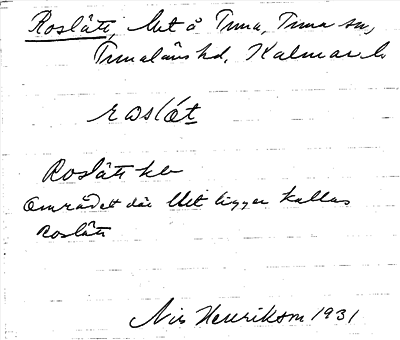 Roslätt, lht å Tuna, Tuna sn,
Tunaläns hd, Kalmar l.
roslǽt
Roslätt
Området där lht ligger kallas
Roslätt
Nils Henrikson 1931